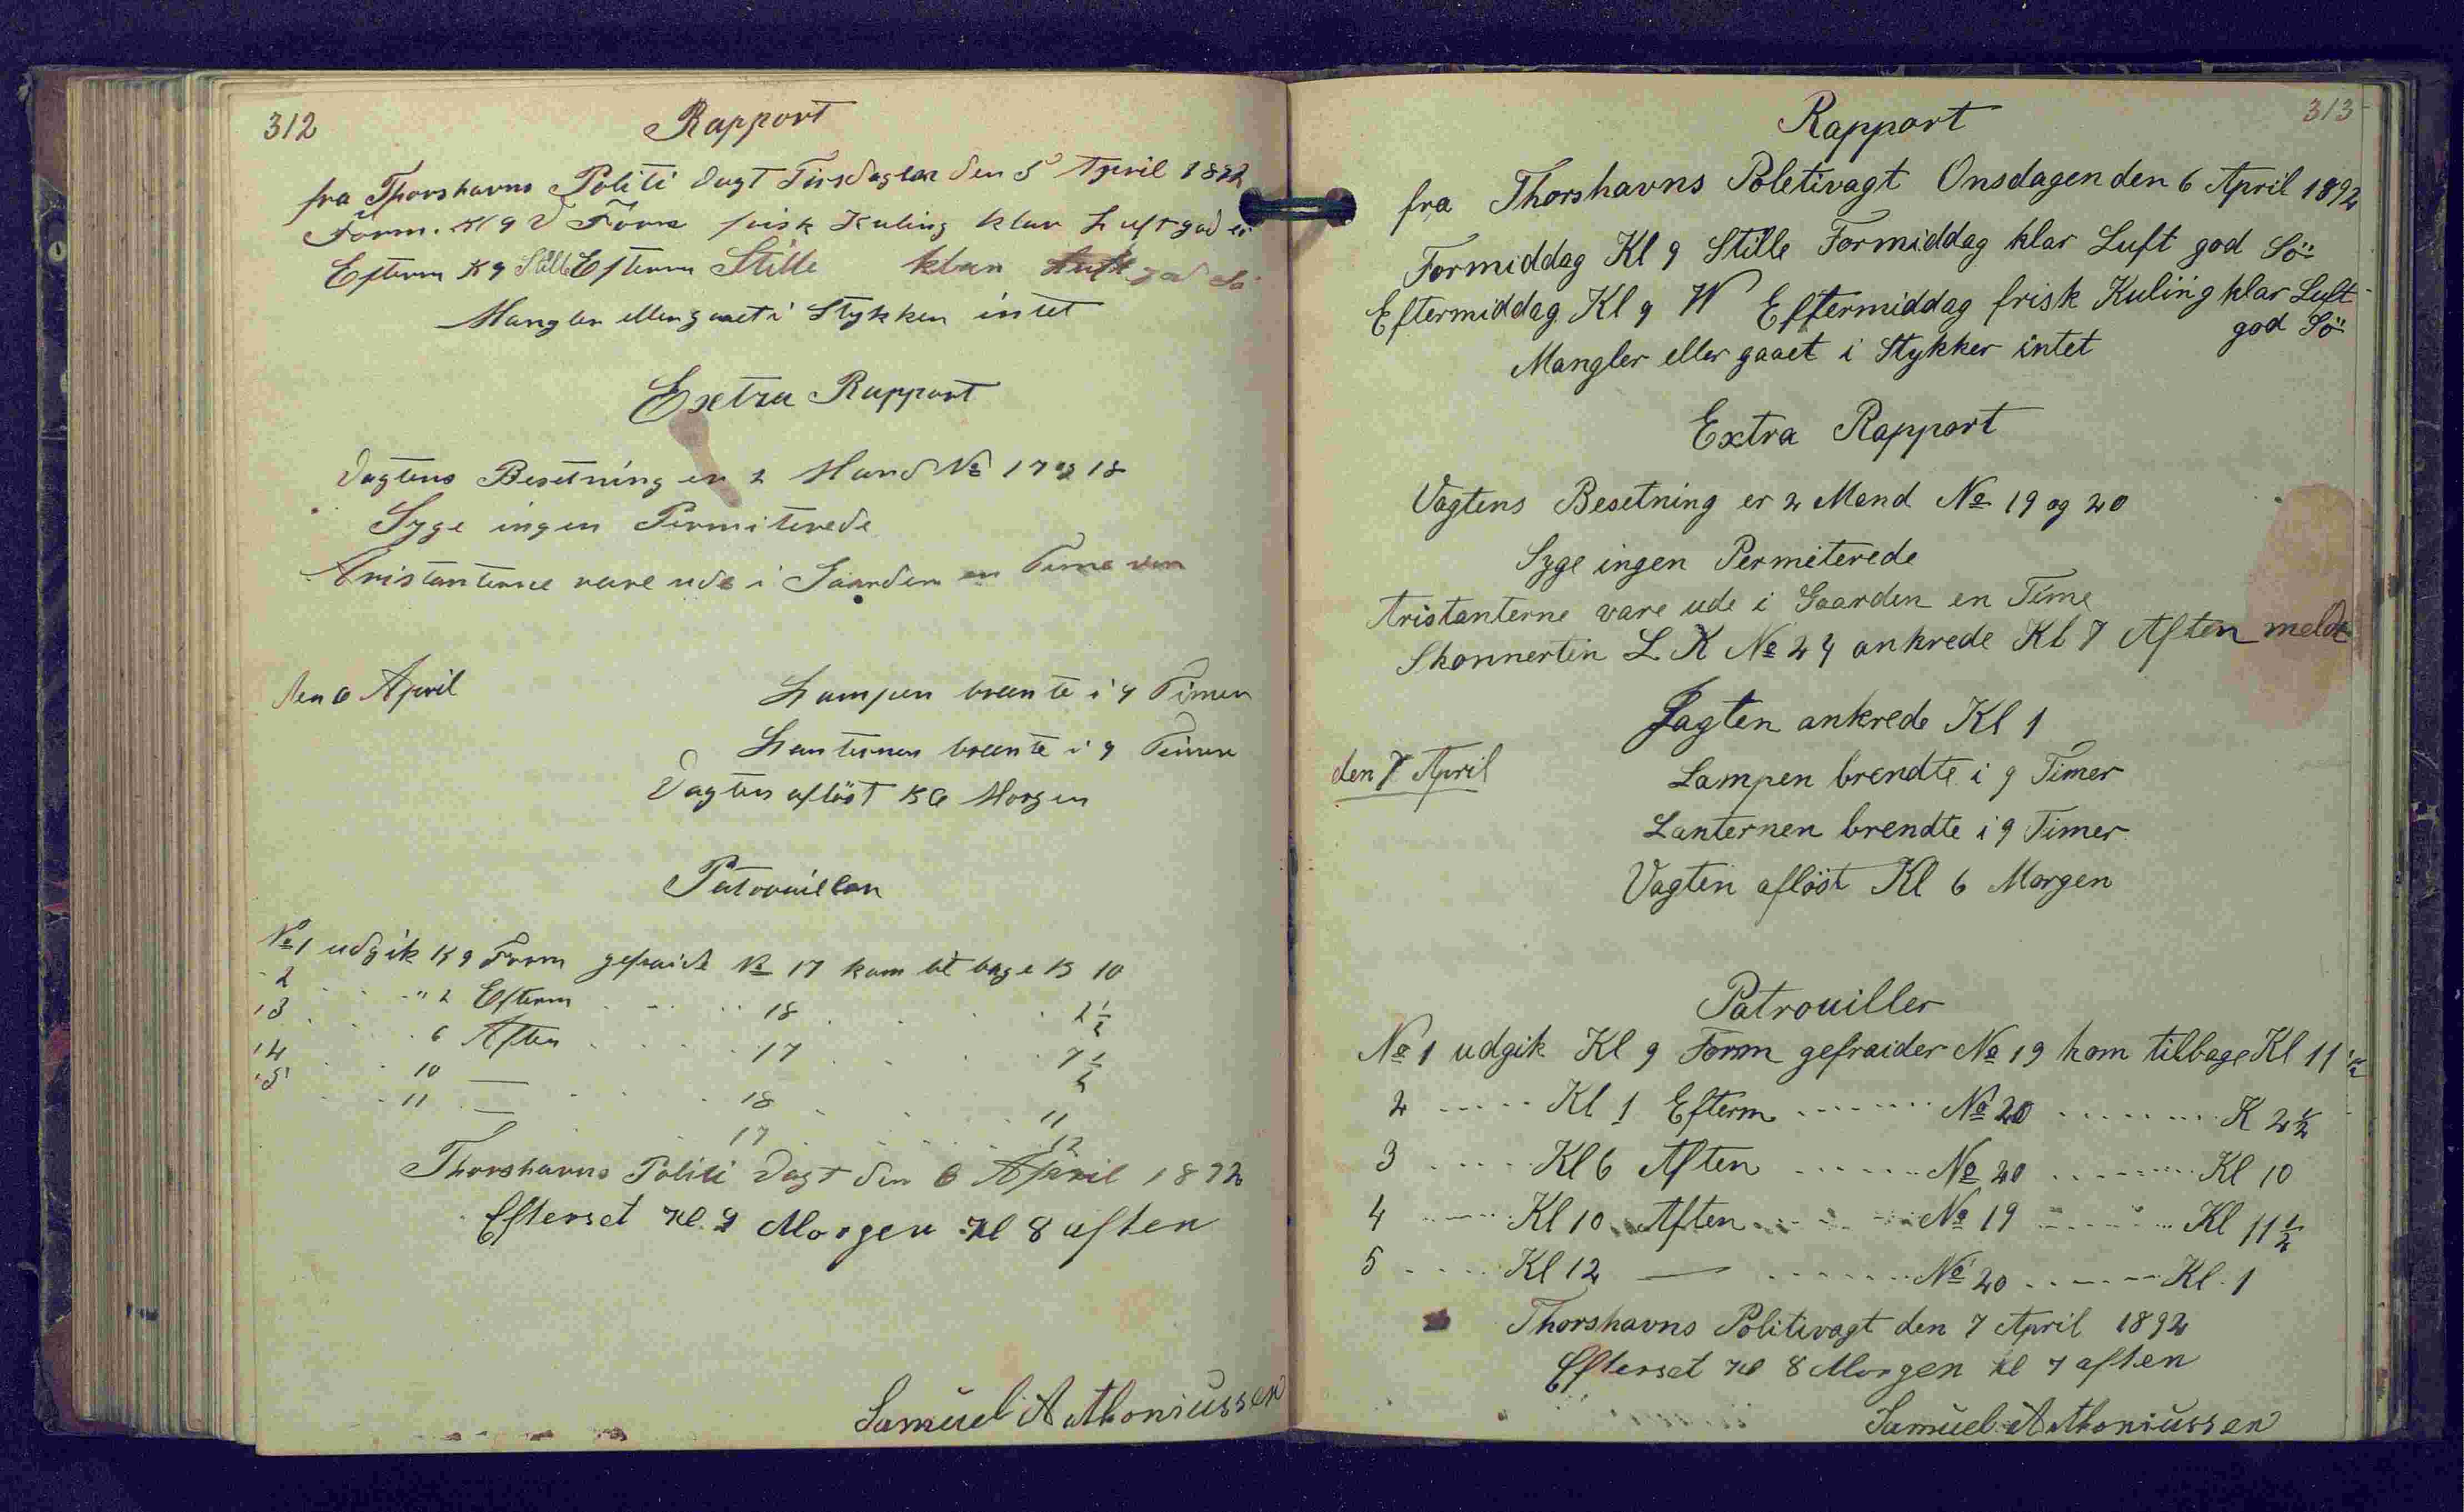 312
Rapport
fra Thorshavns Politi Vagt Tirsdagen den 5 April 1892
Form. Kl 9 V Form frisk Kuling klar Luft god Sö
Efterm K 9 Stille Efterm Stille klar Luft god Sö
Mangler eller gaaet i Stykker intet
Extra Rapport
Vagtens Besetning er 2 Mand No 17 og 18
Syge ingen Permiterede
Aristanterne vare ude i Gaarden en Time
den 6 April
Lampen brente i 9 Timer
Lanternen brente i 9 Timer
Vagten aflöst K 6 Morgen
Patrouiller
No 1 udgik K 9 Form gefraider No 17 kom tilbage K 10
" 2 " 2 Efterm 18 2½
" 3 6 Aften 17 7½
" 4 10 — 18 11
" 5 11 — 17 12
Thorshavns Politi Vagt den 6 April 1892
Efterset Kl. 9 Morgen Kl 8 aften
Samuel A Athoniussen
313
Rapport
fra Thorshavns Poletivagt Onsdagen den 6 April 1892
Formiddag Kl 9 Stille Formiddag klar Luft god Sö
Eftermiddag Kl 9 W Eftermiddag frisk Kuling klar Luft
god Sö
Mangler eller gaaet i Stykker intet
Extra Rapport
Vagtens Besetning er 2 Mand No 19 og 20
Syge ingen Permeterede
Aristanterne vare ude i Gaarden en Time
Skonnerten L K No 24 ankrede Kl 7 Aften meldt
Jagten ankrede Kl 1
den 7 April
Lampen brendte i 9 Timer
Lanternen brendte i 9 Timer
Vagten aflöst Kl 6 Morgen
Patrouiller
No 1 udgik Kl 9 Form gefraider No 19 kom tilbage Kl 11½
2 Kl 1 Efterm No 20 K 2½
3 Kl 6 Aften No 20 Kl 10
4 Kl 10 Aften No 19 Kl 11½
5 Kl 12 — No 20 Kl. 1
Thorshavns Politivagt den 7 April 1892
Efterset Kl 8 Morgen Kl 7 aften
Samuel A Athoniussen